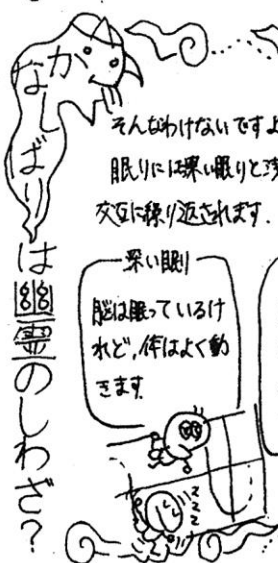 かなしばりは幽霊のしわざ？
そんなわけないですよ
眠りには深い眠りと浅
交互に繰り返されます.
深い眠り
脳は眠っているけ
れど,体はよく動
きます
zzz